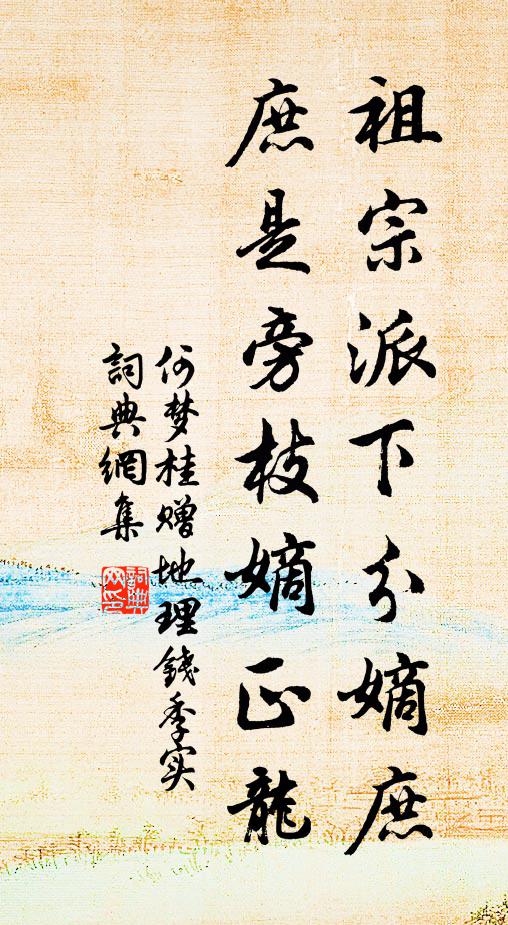 祖宗派下分嫡庶
庶是旁枝嫡正龍
何梦桂赠地理錢季实
詞典網集
詞典